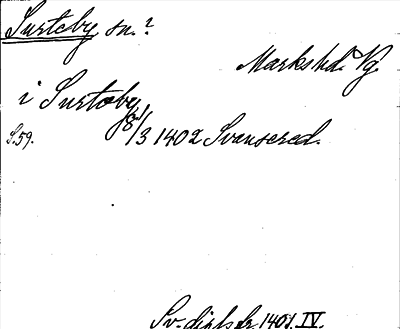 Surteby sn.?
Markshd. Vg.
i Surteby
S.59. 18/3 1402 Svansered.
Sv. dipl. fr. 1401. IV.